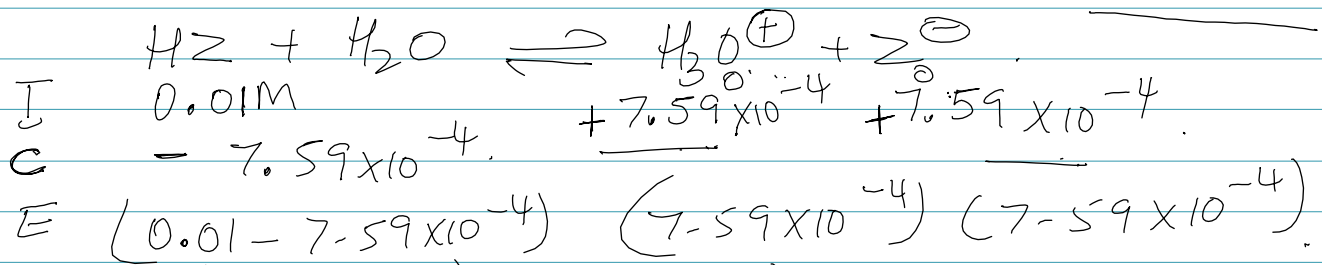 HZ + H₂O ⇌ H₃O⊕ + Z⊖.
I 0.01M 0 0
+7.59×10⁻⁴ +7.59×10⁻⁴.
C - 7.59×10⁻⁴.
E (0.01 - 7.59×10⁻⁴) (7.59×10⁻⁴) (7.59×10⁻⁴).